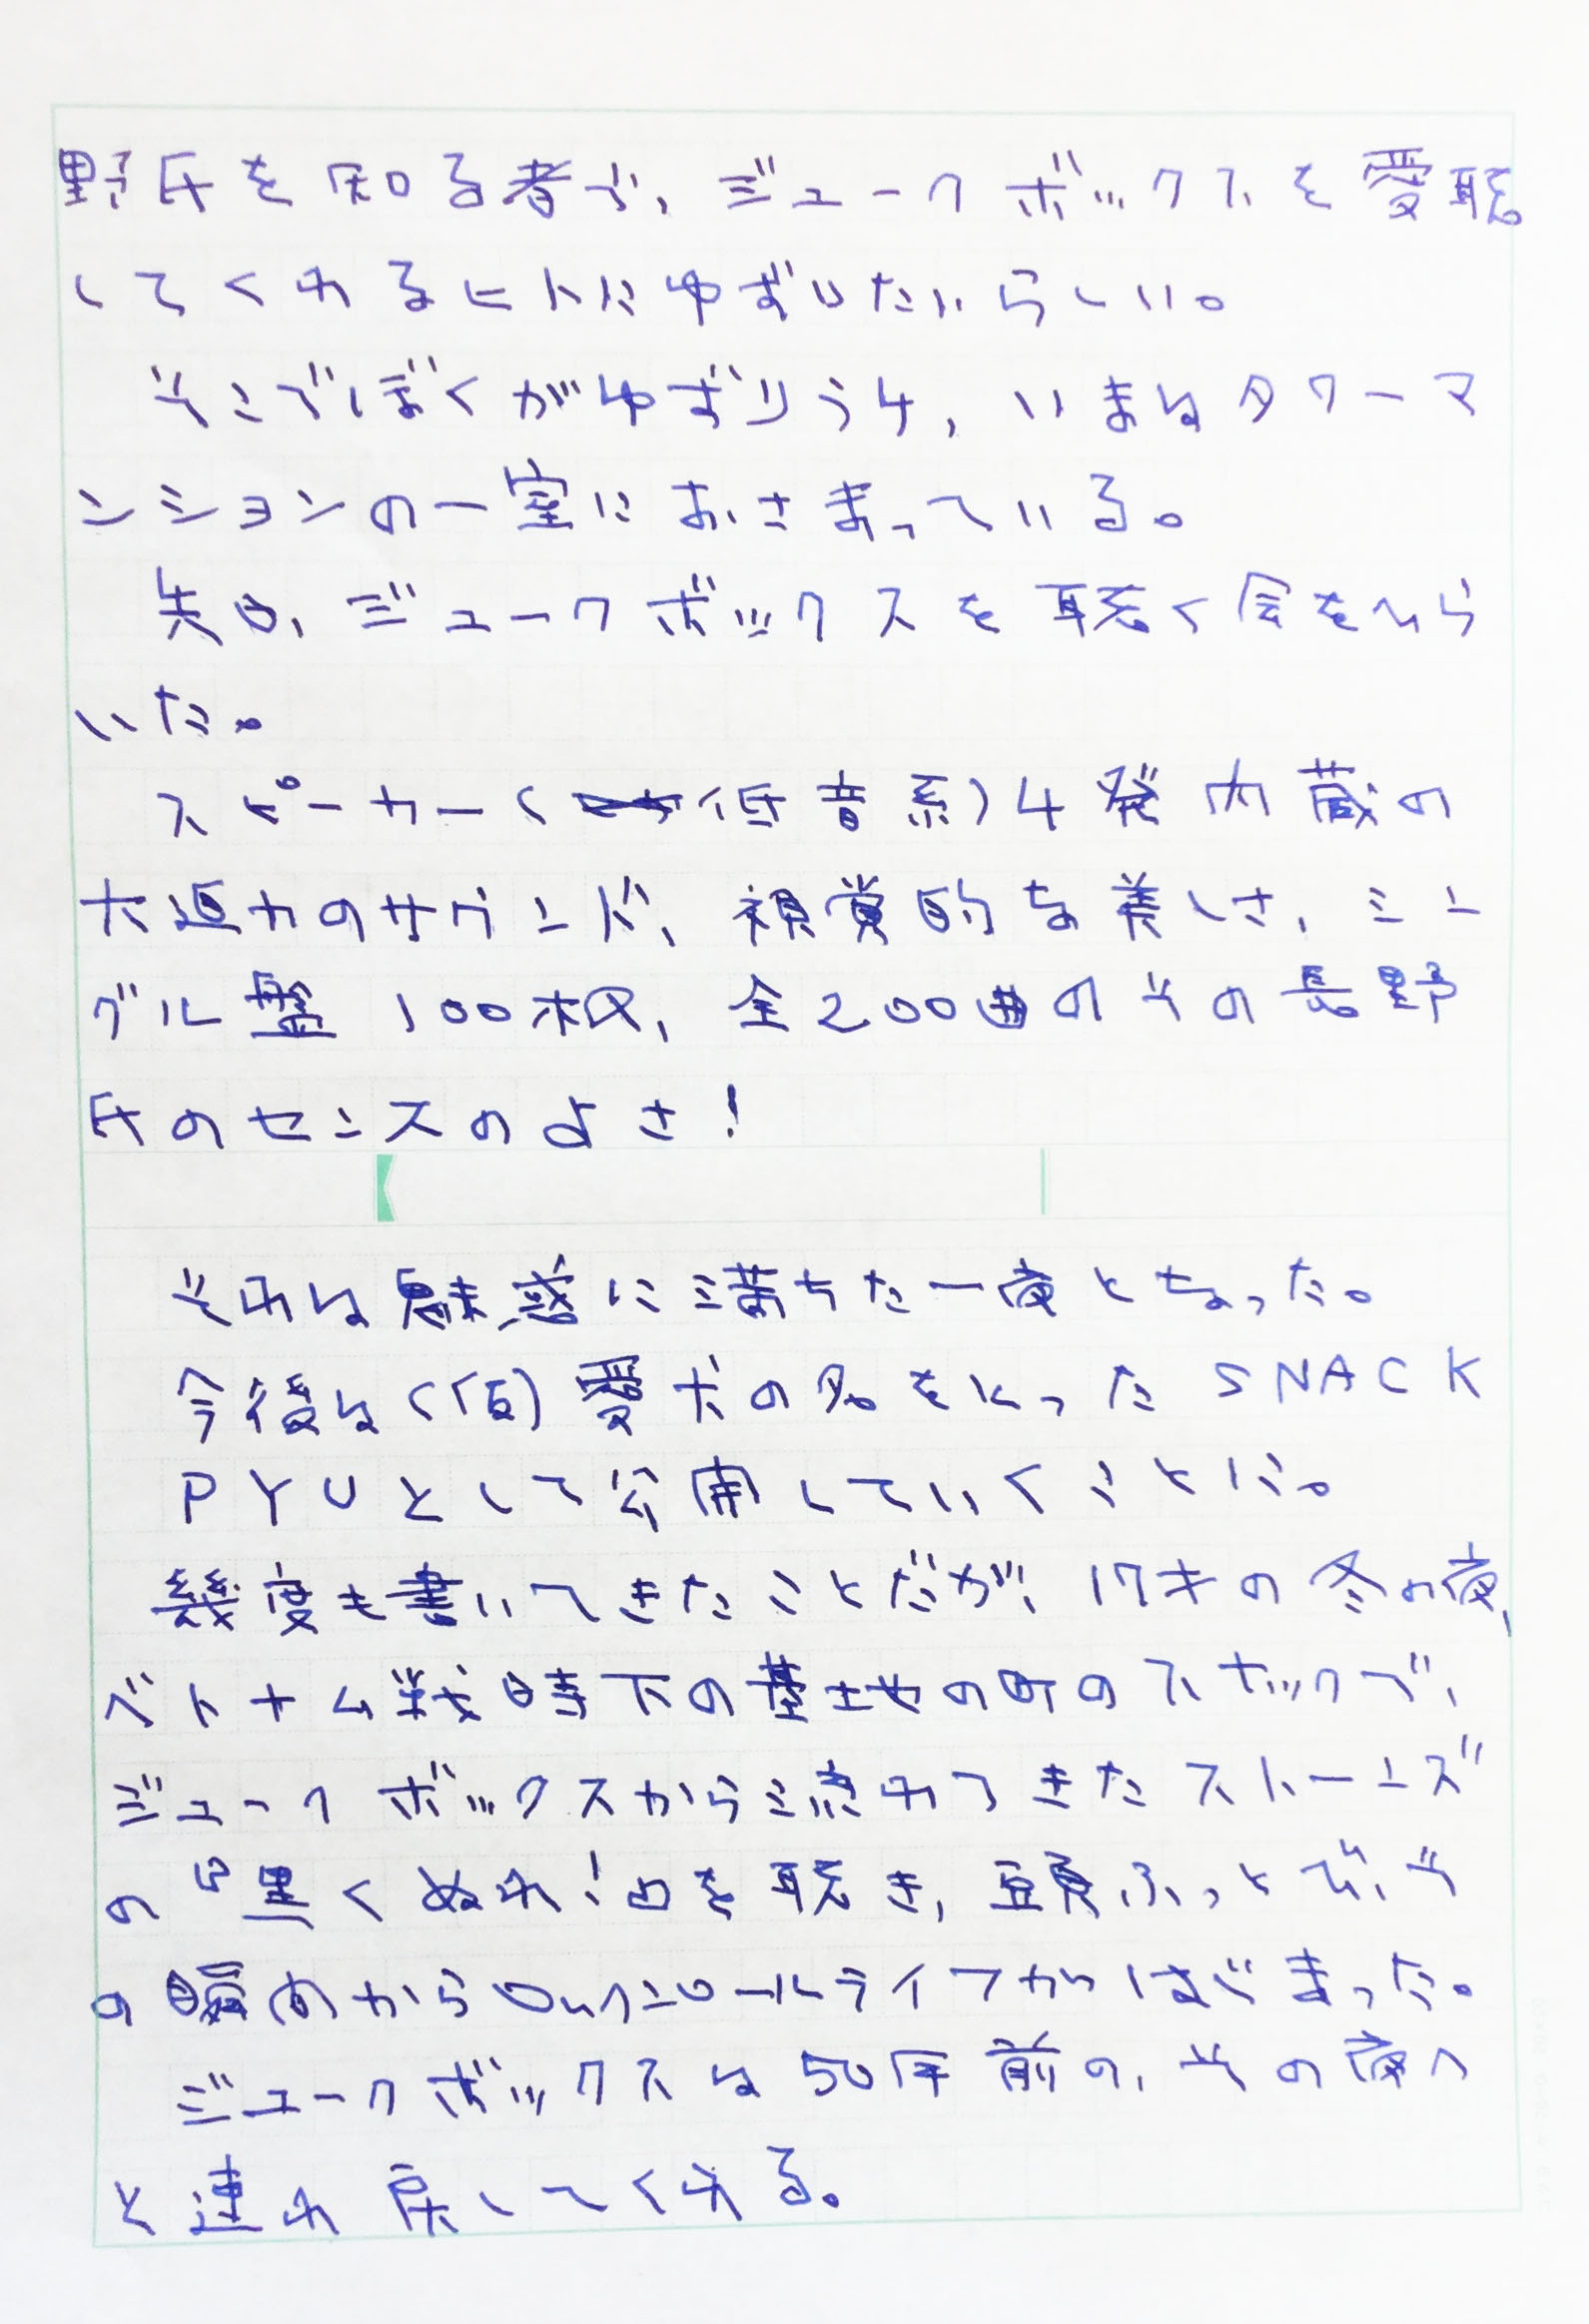 野氏を知る者で、ジュークボックスを愛聴
してくれるヒトにゆずりたいらしい。
そこでぼくがゆずりうけ、いまはタワーマ
ンションの一室におさまっている。
先日、ジュークボックスを聴く会をひら
いた。
スピーカー(低音系)4発内蔵の
大迫力のサウンド、視覚的な美しさ、シン
グル盤100枚、全200曲のその長野
氏のセンスのよさ!
それは魅惑に満ちた一夜となった。
今後は(仮)愛犬の名をとったSNACK
PYUとして公開していくことに。
幾度も書いてきたことだが、17才の冬の夜、
ベトナム戦時下の基地の町のスナックで、
ジュークボックスから流れてきたストーンズ
の「黒くぬれ!」を聴き、頭ふっとび、そ
の瞬間からロックンロールライフがはじまった。
ジュークボックスは50年前の、その夜へ
と連れ戻してくれる。